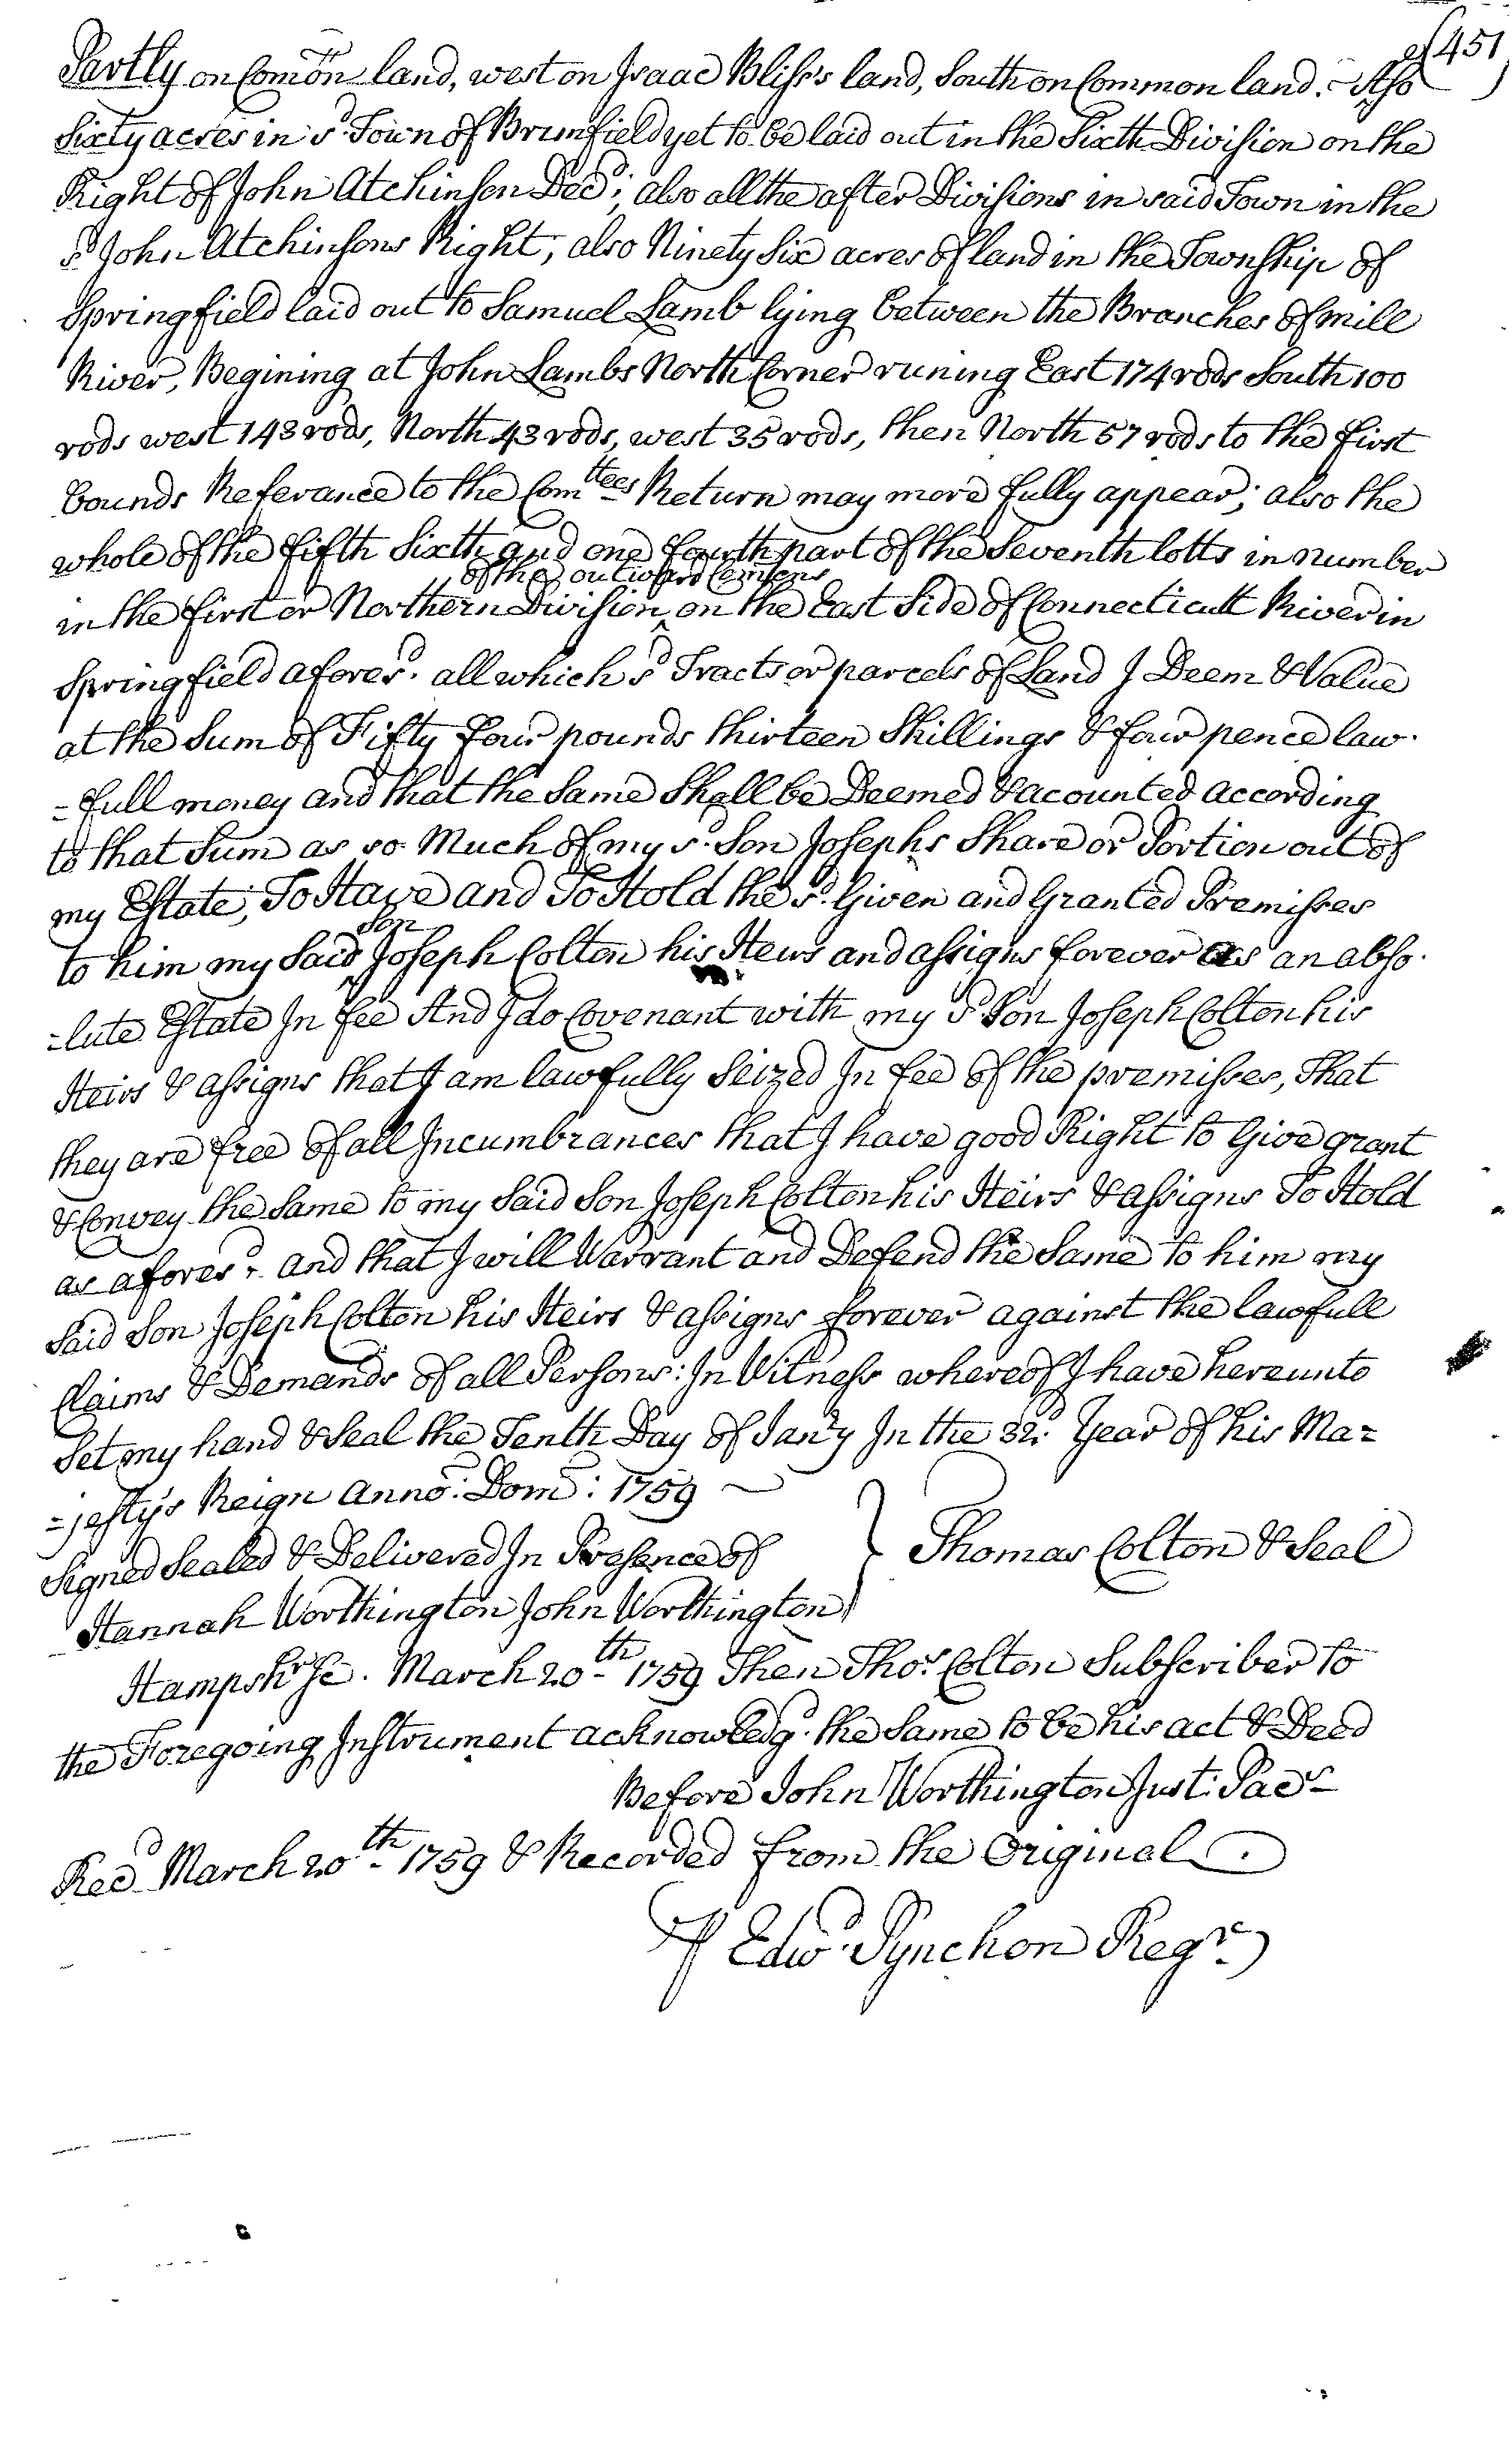 451
Partly on Comon land, west on Isaac Bliss's land, South on Common land. Also
Sixty acres in sd. Town of Brimfield yet to be laid out in the Sixth Division on the
Right of John Atchinson Decd; also all the after Divisions in said Town in the
sd John Atchinsons Right, also Ninety Six acres of land in the Township of
Springfield laid out to Samuel Lamb lying between the Branches of mill
River, Begining at John Lambs North Corner runing East 174 rods South 100
rods west 143 rods, North 43 rods, west 35 rods, then North 57 rods to the first
bounds Referance to the Comttees Return may more fully appear; also the
whole of the fifth Sixth and one fourth part of the Seventh lotts in number
of the outward Comons
in the first or Northern Division ^ on the East Side of Connecticutt River in
Springfield afores.d all which sd Tracts or parcels of Land I Deem & Value
at the Sum of Fifty four pounds thirteen Shillings & four pence law-
=full money and that the Same Shall be Deemed & acounted according
to that Sum as so Much of my sd. Son Josephs Share or Portion out of
my Estate, To Have and To Hold the sd. Given and Granted Premisses
son
to him my Said ^ Joseph Colton his Heirs and assigns forever as an abso-
=lute Estate In fee And I do Covenant with my sd Son Joseph Colton his
Heirs & assigns that I am lawfully Seized In fee of the premisses, That
they are free of all Incumbrances that I have good Right to Give grant
& Convey the Same to my Said Son Joseph Colton his Heirs & assigns To Hold
as afores.d and that I will Warrant and Defend the Same to him my
Said Son Joseph Colton his Heirs & assigns forever against the lawfull
Claims & Demands of all Persons: In Witness whereof I have hereunto
Set my hand & Seal the Tenth Day of Janry In the 32d. Year of his Ma=
=jestys Reign Anno: Dom: 1759
Signed Sealed & Delivered In Presence of } Thomas Colton & Seal
Hannah Worthington John Worthington
Hampshr Sc. March 20th 1759 Then Thos Colton Subscriber to
the Foregoing Instrument acknowledg'd the Same to be his act & Deed
Before John Worthington Just: Pacs
Recd March 20th 1759 & Recorded from the Original
℘ Edwd Pynchon Regr